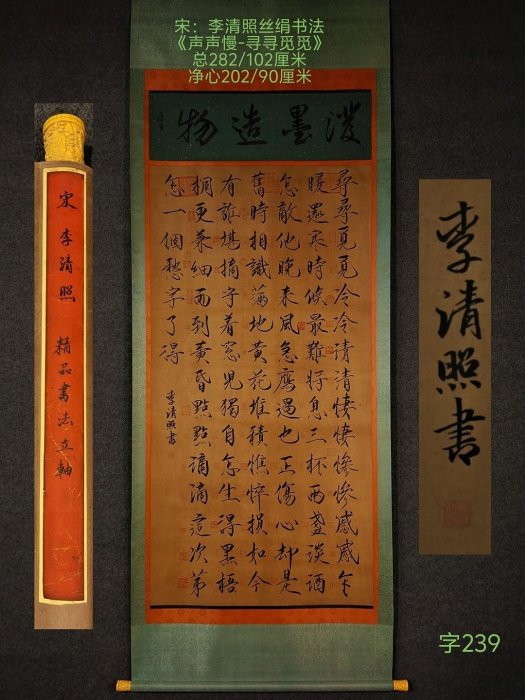 宋：李清照丝绢书法
《声声慢-寻寻觅觅》
总282/102厘米
净心202/90厘米
潑墨造物
尋尋覓覓冷冷清清悽悽慘慘慼慼乍
暖還寒時候最難將息三杯兩盞淡酒
怎敵他晚來風急鴈過也正傷心却是
舊時相識滿地黃花堆積憔悴損如今
有誰堪摘守着窓兒獨自怎生得黑梧
桐更兼細雨到黃昏點點滴滴這次第
怎一個愁字了得
李清照書
宋 李清照 精品书法立軸
李清照書
字239